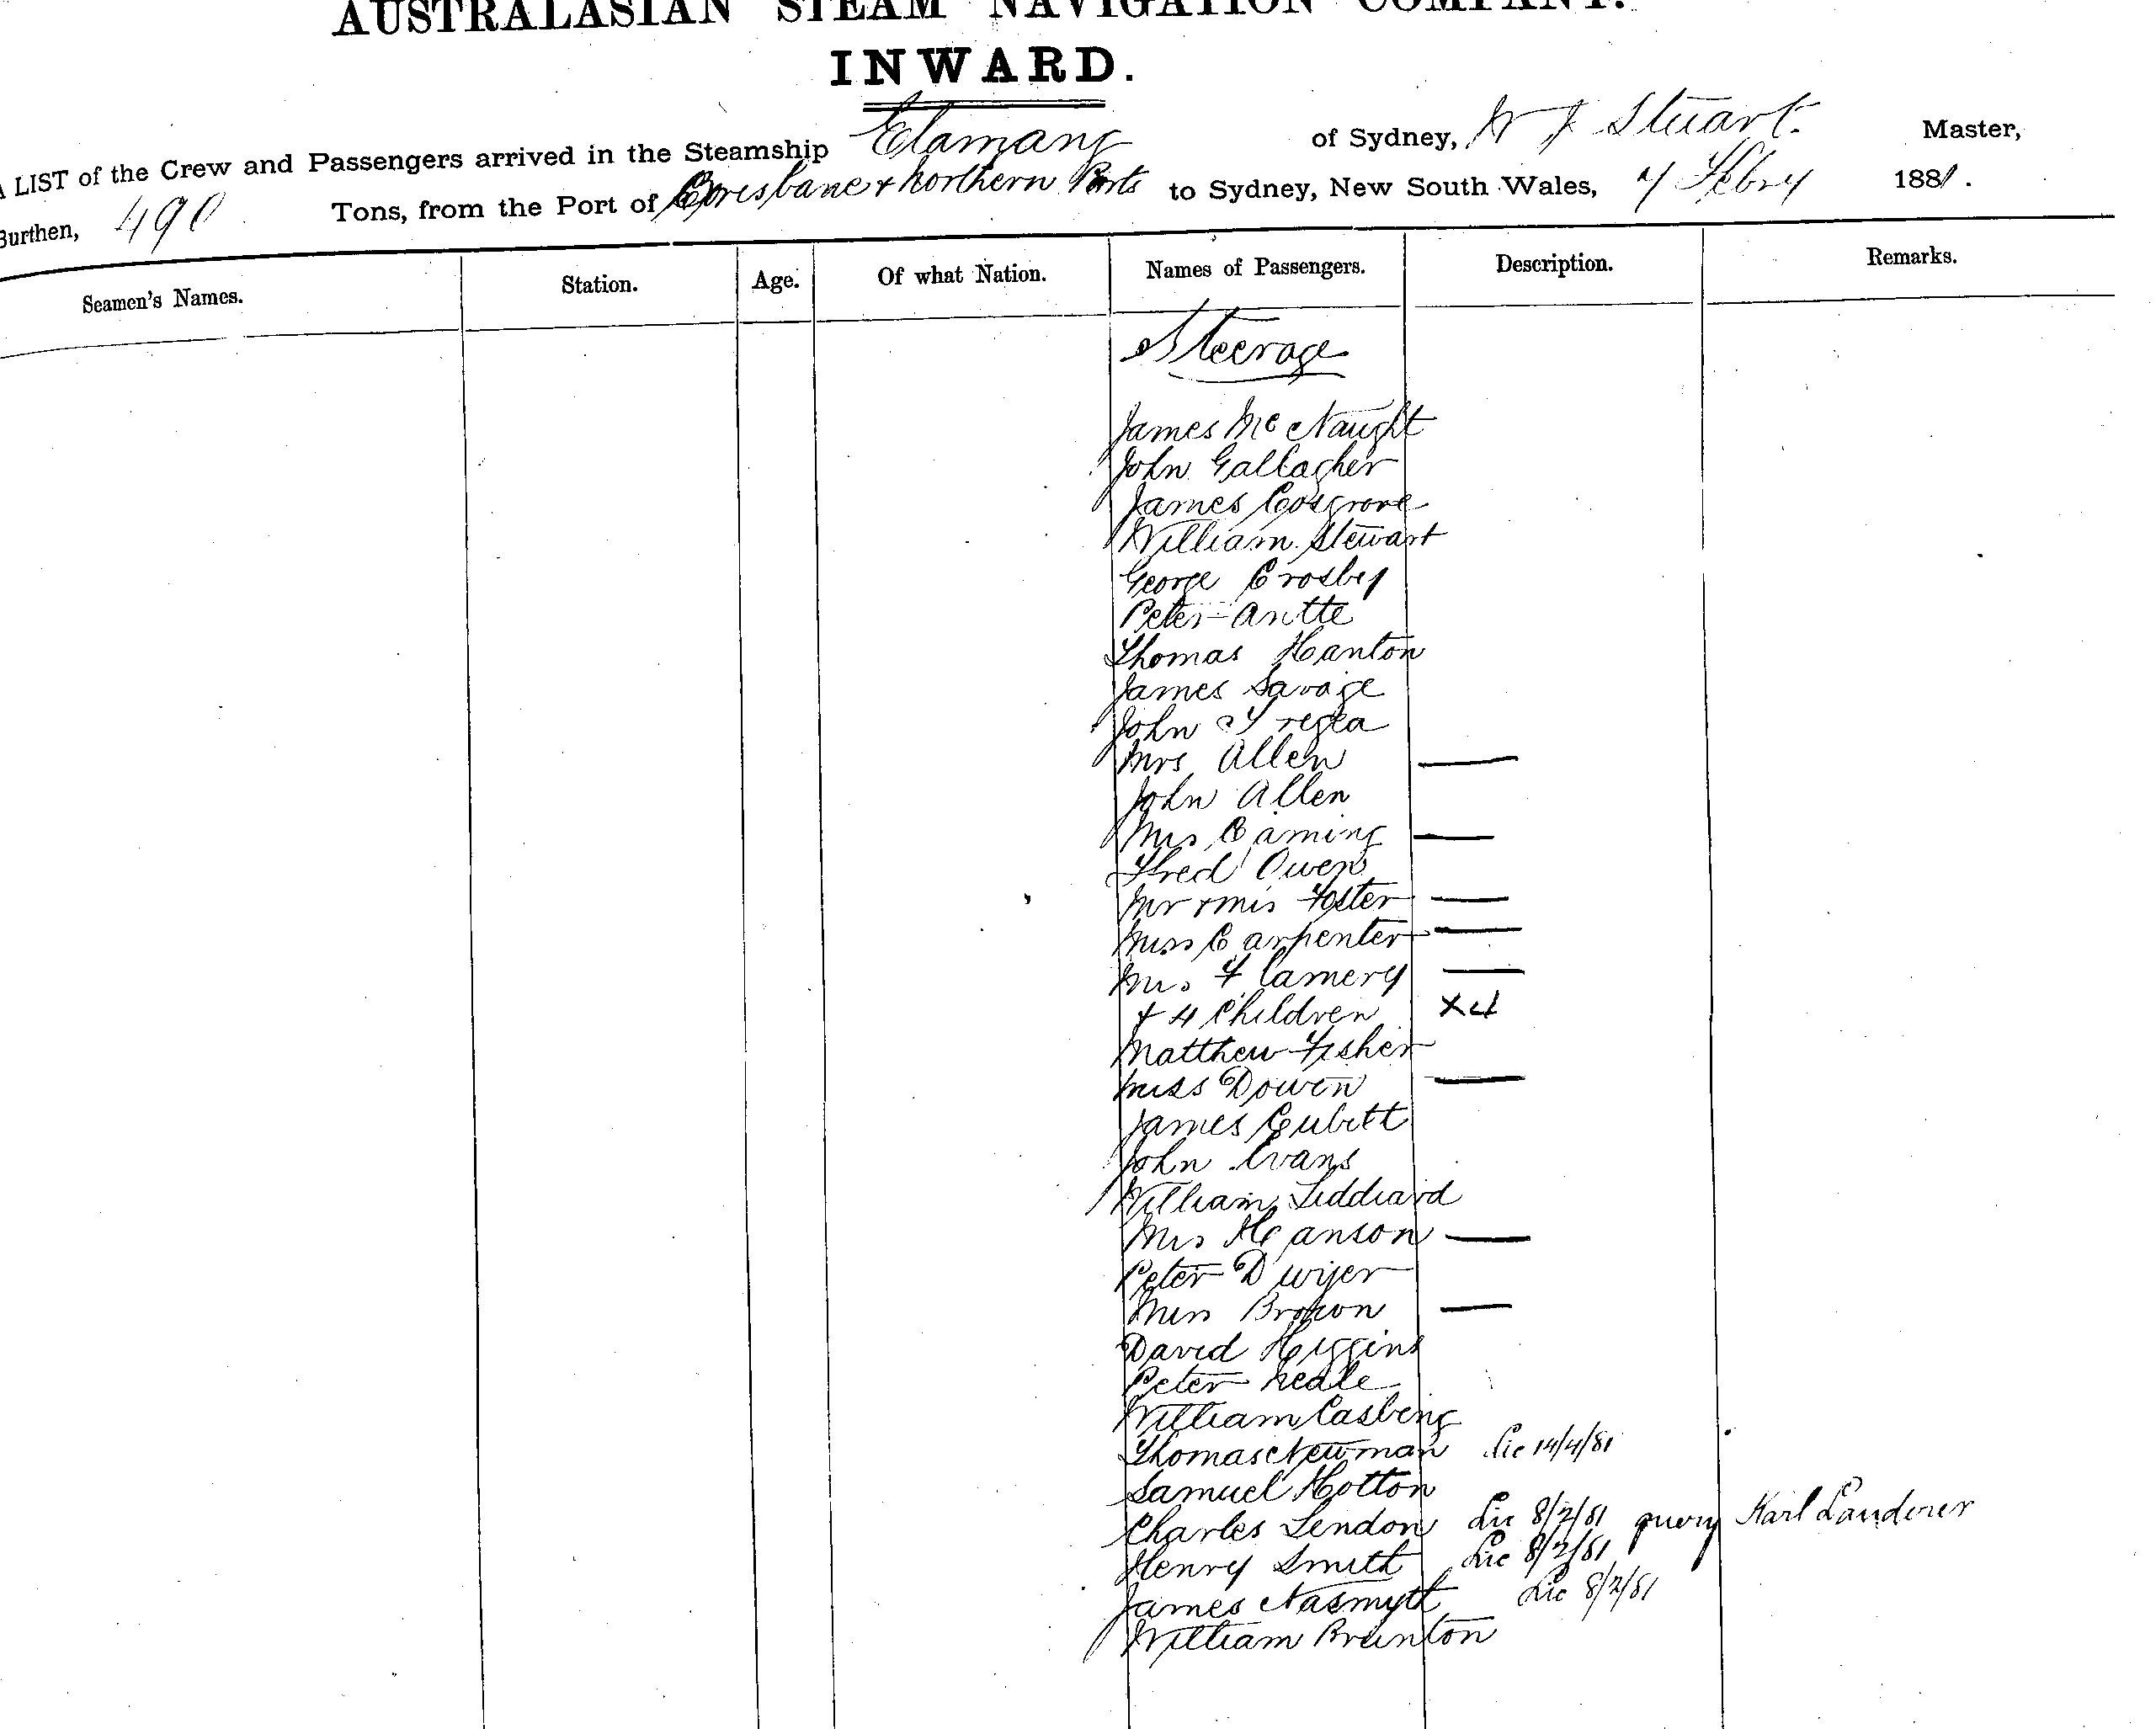 AUSTRALASIAN STEAM NAVIGATION COMPANY.
INWARD.
A LIST of the Crew and Passengers arrived in the Steamship Elamang of Sydney, W J Stuart. Master,
Burthen, 490 Tons, from the Port of Brisbane & Northern Ports to Sydney, New South Wales, 7 Febry 1881.
Seamen's Names. Station. Age. Of what Nation. Names of Passengers. Description. Remarks.
Steerage
James McNaught
John Gallagher
James Cosgrove
William Stewart
George Crosby
Peter Antte
Thomas Hanton
James Savage
John Tregea
Mrs Allen —
John Allen
Mrs Caming —
Fred Owen
Mr & Mrs Foster —
Miss Carpenter —
Mrs F Camery —
& 4 Children X4
Matthew Fisher
Miss Dowen —
James Cubitt
John Evans
William Liddiard
Mrs Hanson —
Peter Dwyer
Miss Brown —
David Higgins
Peter Neale
William Casbeng
Thomas Newman Lic 14/4/81
Samuel Hotton
Charles Lendon Lic 8/2/81 query Karl Landerer
Henry Smith Lic 8/2/81
James Nasmyth Lic 8/2/81
William Brunton